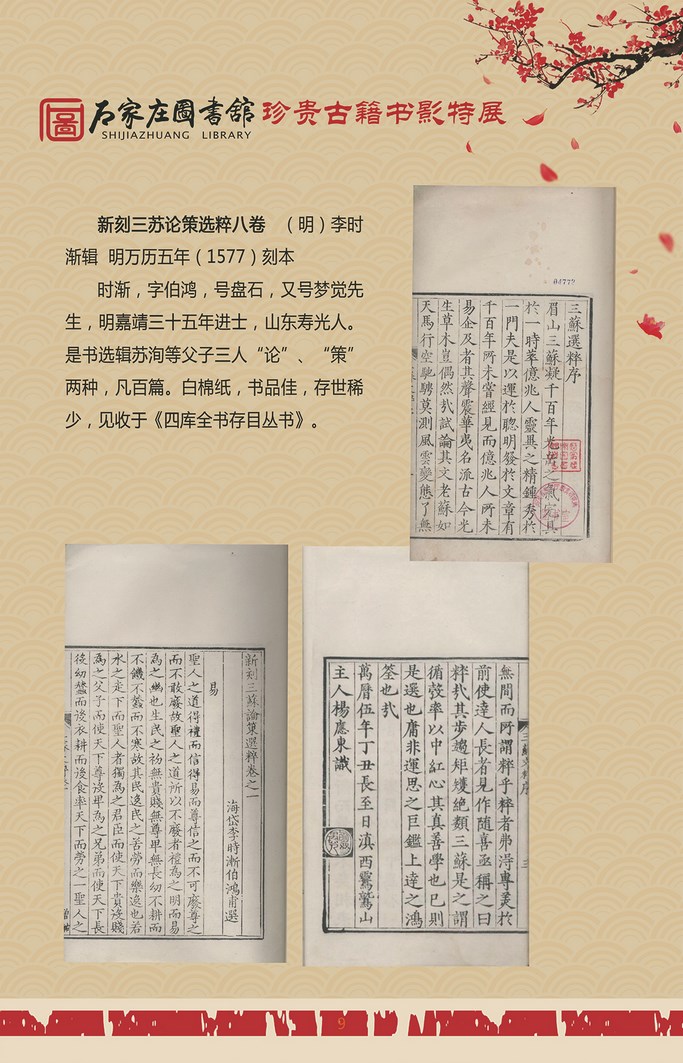 石家庄圖書舘 珍贵古籍书影特展
SHIJIAZHUANG LIBRARY
新刻三苏论策选粹八卷 （明）李时
渐辑 明万历五年（1577）刻本
时渐，字伯鸿，号盘石，又号梦觉先
生，明嘉靖三十五年进士，山东寿光人。
是书选辑苏洵等父子三人“论”、“策”
两种，凡百篇。白棉纸，书品佳，存世稀
少，见收于《四库全书存目丛书》。
04772
三蘇選粹序
眉山三蘇凝千百年光嶽之氣宛具
於一時萃億兆人靈異之精鍾秀於
一門夫是以運於聰明發於文章有
千百年所未嘗經見而億兆人所未
易企及者其聲震華夷名派古今光
生草木豈偶然㢤試論其文老蘇如
天馬行空馳騁莫測風雲變態了無
新刻三蘇論策選粹卷之一
海岱李時漸伯鴻甫選
易
聖人之道得禮而信得易而尊信之而不可廢尊之
而不敢廢故聖人之道所以不廢者禮為之明而易
為之幽也生民之初無貴賤無尊卑無長幼不耕而
不饑不蠶而不寒故其民逸民之苦勞而樂逸也若
水之走下而聖人者獨為之君臣而使天下貴役賤
為之父子而使天下尊役卑為之兄弟而使天下長
後幼蠶而後衣耕而後食率天下而勞之一聖人之
無間而所謂粹乎粹者弗淂專羙於
前使達人長者見作随喜亟稱之曰
粹㢤其步趨矩矱絶類三蘇是之謂
循彀率以中紅心其真善學也已則
是選也庸非運思之巨鑑上達之鴻
筌也㢤
萬曆伍年丁丑長至日滇西鷲鷲山
主人楊應東識
9